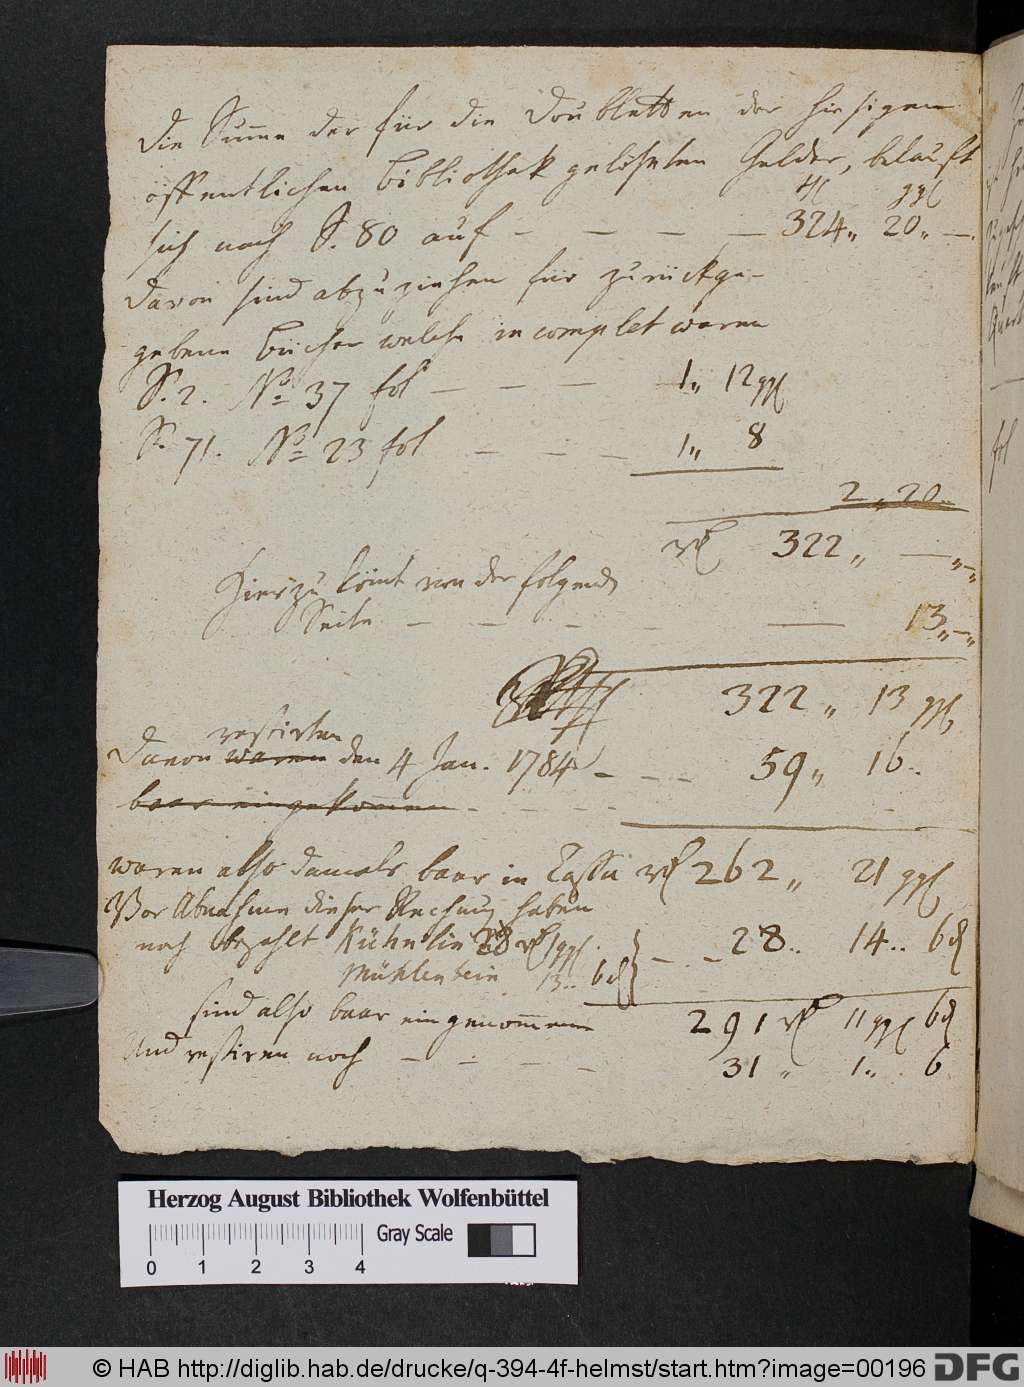 Die Summe der für die Doubletten der hiesigen
öffentlichen Bibliothek gelöseten Gelder, belauft
rthl ggl
sich nach S. 80 auf — — — — 324 „ 20 „ —.
Davon sind abzuziehen für zurückge-
gebene Bücher welche incomplet waren
S. 2. No 37 fol — — — 1 „ 12 ggl
S. 71. No 23 fol — — — 1 „ 8
2 „ 20 „
rthl 322 „ — „ — „
Hierzu kömt von der folgend
Seite — — — — — 13 „ — „
322 „ 13 ggl
restirten
Davon waren den 4 Jan. 1784 — — — 59 „ 16 ..
baar eingekommen — — — —
waren also damals baar in Cassa rthl 262 „ 21 ggl
Vor Abnahme dieser Rechnung haben
noch bezahlt Kühnlin 28 rthl 1 ggl. } — — 28 .. 14 .. 6 d
Mühlenbein 13 .. 6 d
sind also baar eingenommen 291 rthl 11 ggl 6 d
Und restiren noch — — — — 31 „ 1 „ 6
Herzog August Bibliothek Wolfenbüttel
Gray Scale
0 1 2 3 4
© HAB http://diglib.hab.de/drucke/q-394-4f-helmst/start.htm?image=00196 DFG